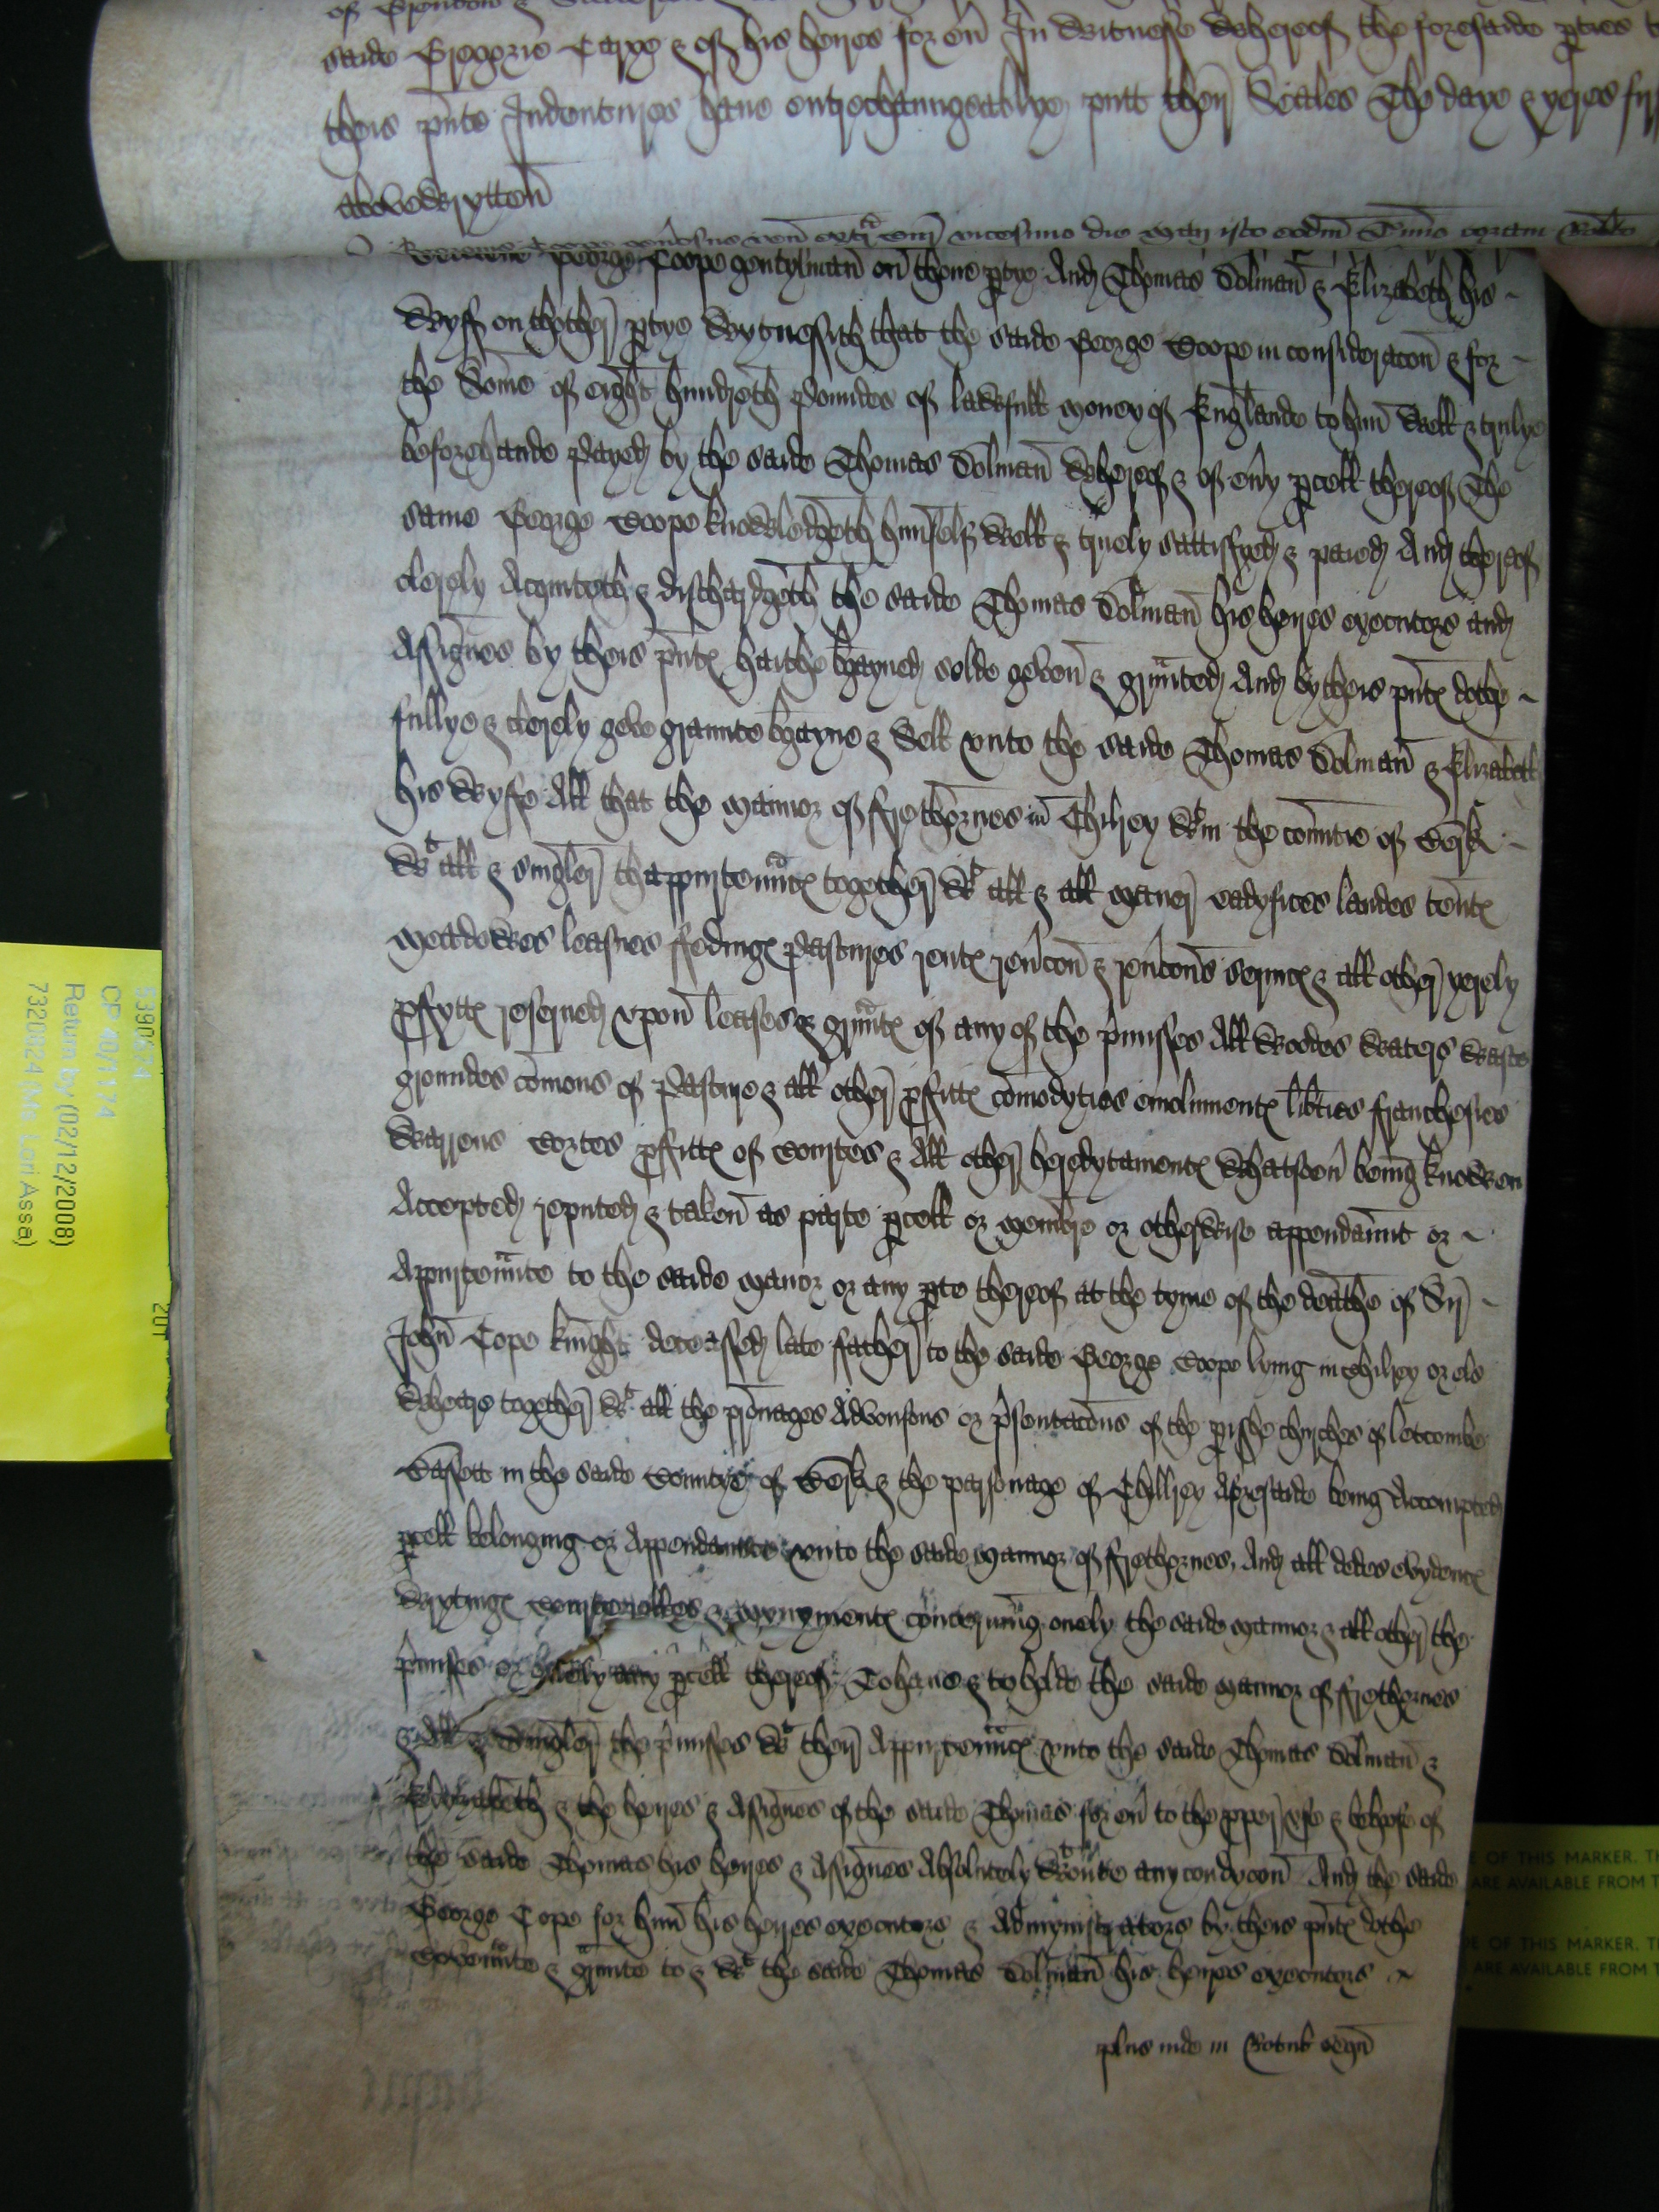 saide Gregorie Carpe & of his heyres for eũ In Witnesse Whereof the foresaide pties
theis p̃nte Indentures have entrechaungeablye putt theyr Seales The daye & yeres
aboveWrytten
George Coope gentylman on thone ptye And Thomas Dolman & Elizabeth his
Wyff on thother ptye Wytnessith that the saide George Coope in consideracon & for
the Some of eight hundreth poundes of laWfull money of Englande to him Well & trulye
beforehande payed by the saide Thomas Dolman Whereof & of eũy pcell thereof The
same George Coope knoWledgeth himself Well & truely sattisfyed & paied And thereof
clerely Acquiteth & dischardgeth the saide Thomas Dolman his heyres executors and
Assignes by theis p̃ntes haithe bgayned solde geven & grunted And by theis p̃ntes dothe
fullye & clerely geve graunte bgayne & Sell unto the saide Thomas Dolman & Elizabeth
his Wyffe All that the mannor of ffrethornes in Chilrey Wtin the countie of Berk
Wt all & singler thappurtennces together Wt all & all maner eadyfices landes tentes
meadoWes leasues ffedinges pastures rentes revcon & revcons services & all other yerely
pffyttes reserued upon leases & gruntes of any of the p̃misses All Woodes Waters Waste
groundes comons of pasture & all other pffittes comodyties emolumentes libties franchesies
Warrens Cortes pffittes of Courtes & All other heredytamentes Whatsoeũ being knoWen
Accepted reputed & taken as parte pcell or membre or otherWise appendaunt or
Appurtennte to the saide manor or any pte thereof at the tyme of the deathe of Sir
John Cope knight deceassed late father to the saide George Coope lying in Chilrey or els
Whears together Wt all the pronages Advousons or p̃sentacons of the parishe churches of letcombe
Bassett in the saide Countye of Berk & the parsonage of Chillrey Aforesaide being Accompted
pcell belonging or Appendaunte unto the saide mannor of ffrethornes, And all dedes evydences
Wrytinges Courterolles & mynymentes concerning onely the saide mannor & all other the
p̃misses or onely any pcell thereof To have & to holde the saide mannor of ffrethornes
& All & Singler the p̃misses Wt their Appurtennces unto the saide Thomas Dolman &
Elizabeth & the heyres & Assignes of the saide Thomas for eũ to the pper use & behofe of
the saide Thomas his heyres & Assignes Absolutely Wtoute any condycon And the saide
George Cope for him his heyres executors & Admynistrators by theis p̃ntes dothe
Covennte & grunte to & Wt the saide Thomas Dolman his heyres executors
plus inde in Rotulo sequn
5390674
CP 40/1174
Return by (02/12/2008)
7320624 (Ms Lori Assa)
E OF THIS MARKER. T
ARE AVAILABLE FROM T
DE OF THIS MARKER. T
ARE AVAILABLE FROM T